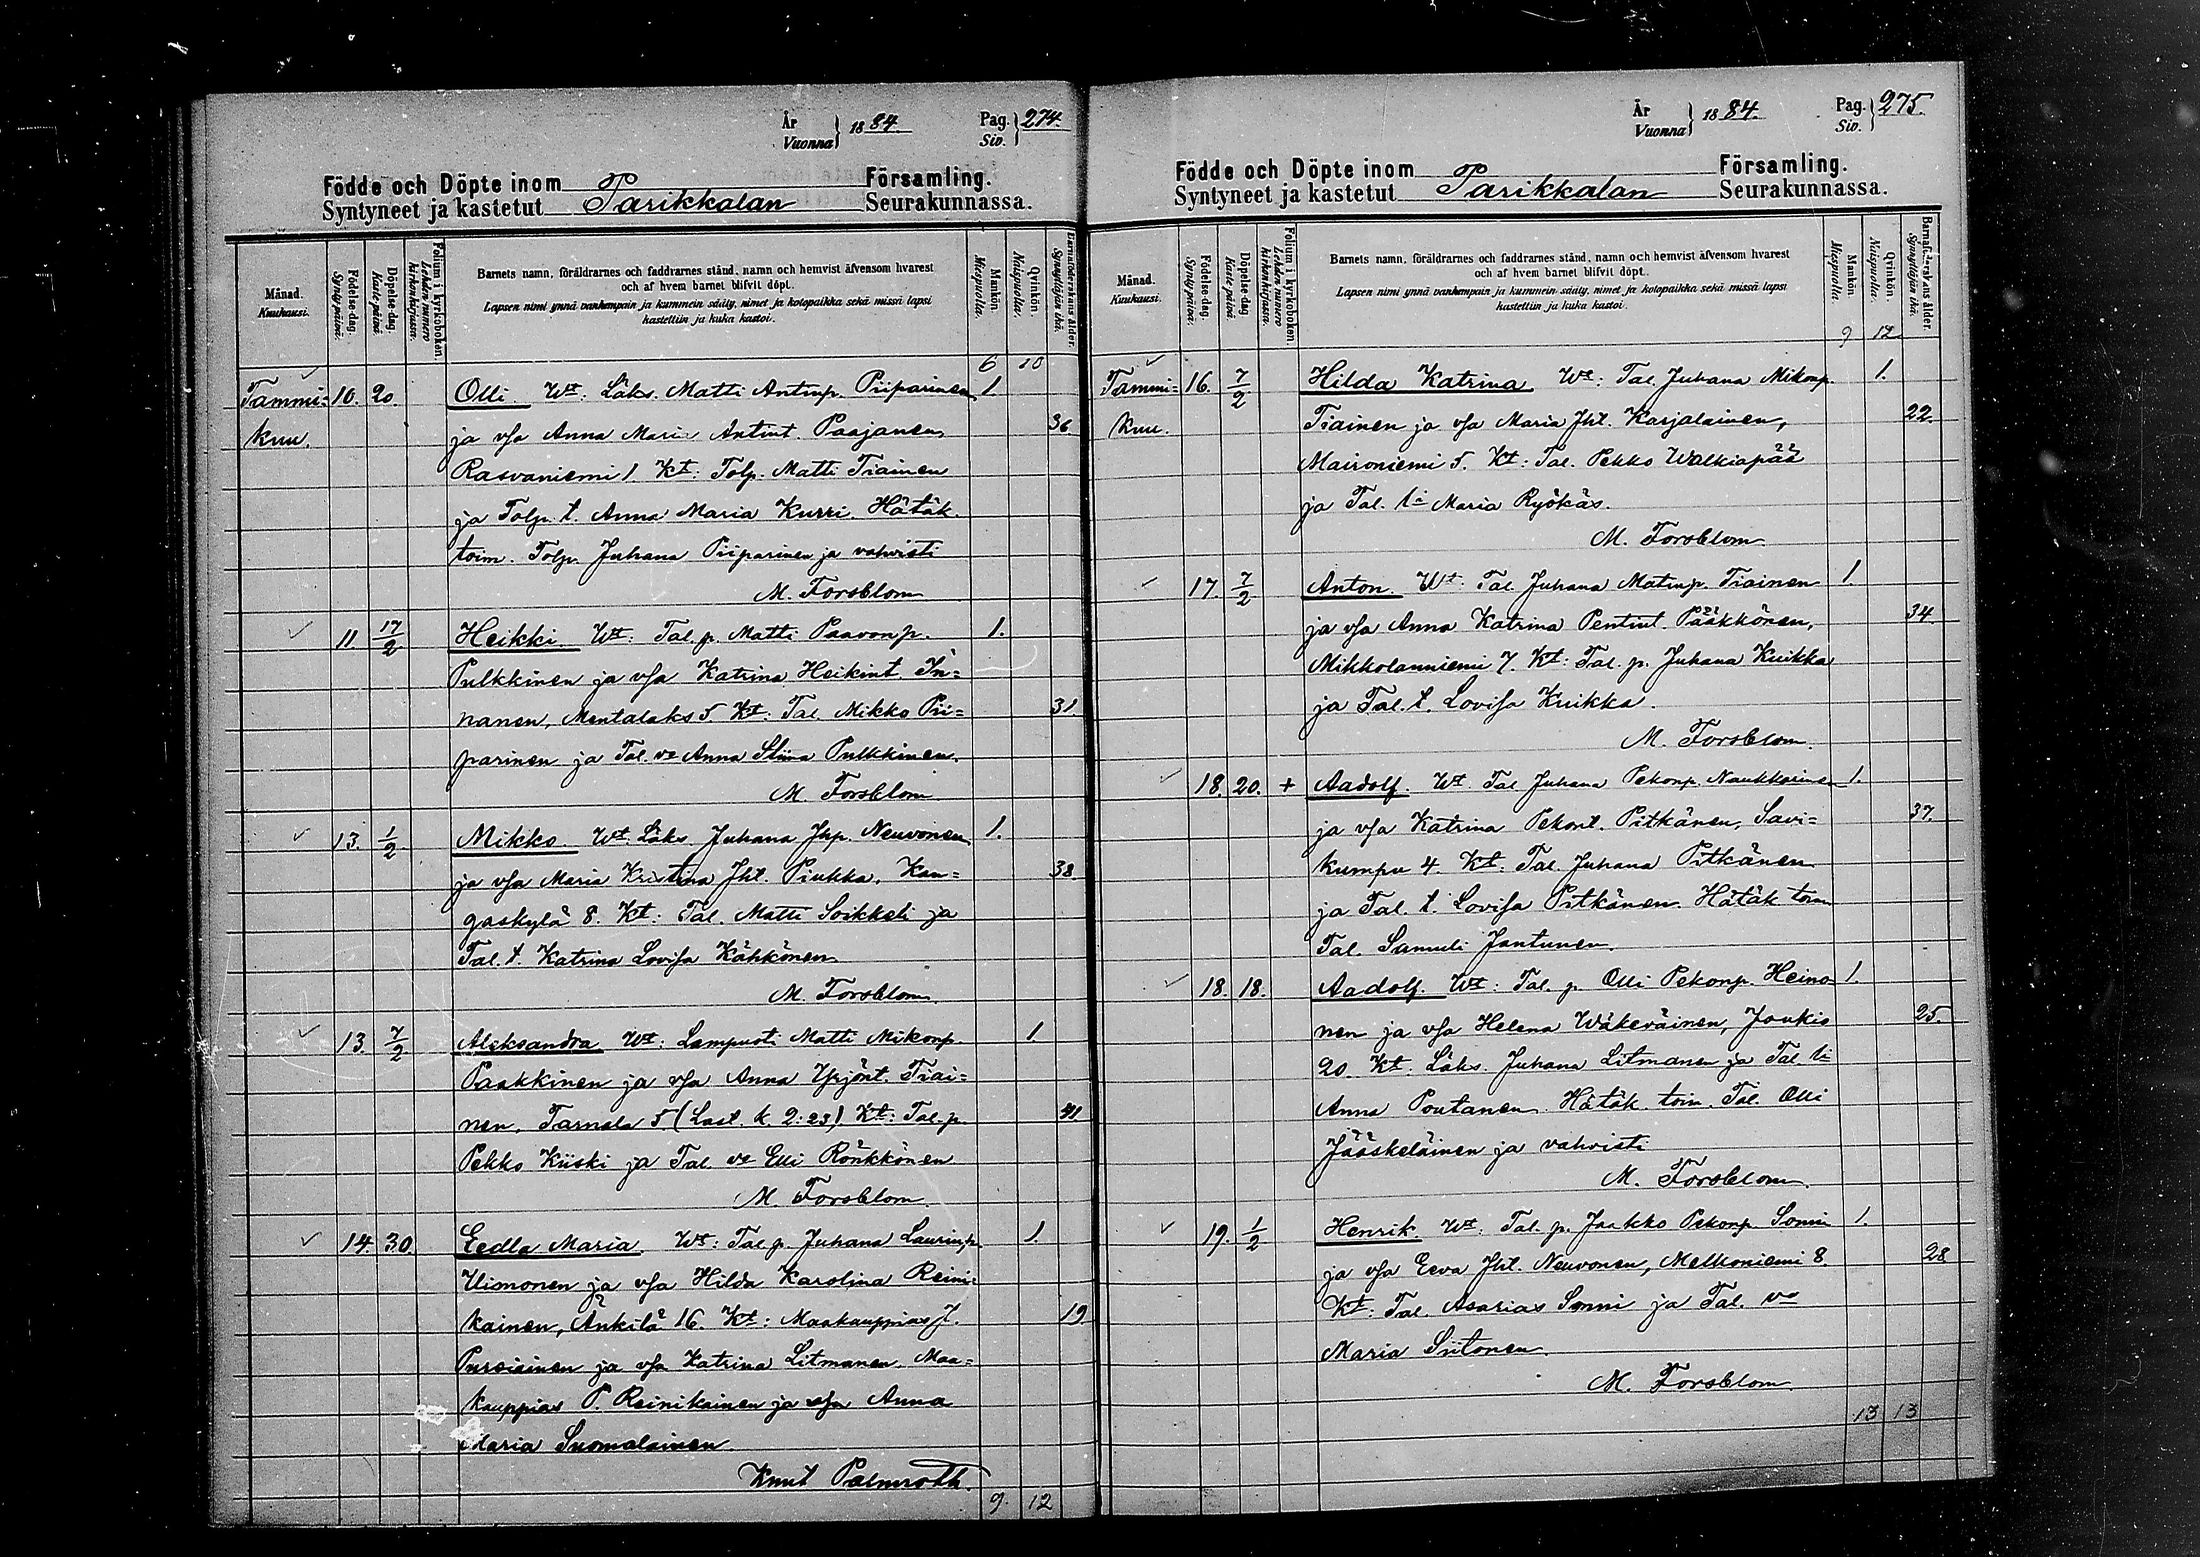 År
Vuonna } 1884. Pag.
Siv. } 274.
Födde och Döpte inom Församling.
Syntyneet ja kastetut Parikkalan Seurakunnassa.
Månad.
Kuukausi.
Födelse-dag.
Syntypäivä.
Döpelse-dag.
Kastepäivä
Folium i kyrkoboken.
Lehden numero kirkonkirjassa.
Barnets namn, föräldrarnes och faddrarnes stånd, namn och hemvist äfvensom hvarest
och af hvem barnet blifvit döpt.
Lapsen nimi ynnä vanhempain ja kummein sääty, nimet ja kotopaikka sekä missä lapsi
kastettiin ja kuka kastoi.
Mankön.
Miespuolia.
Qvinkön.
Naispuolia.
Barnaföderskans ålder.
Synnyttäjän ikä.
6 10
Tammi- 10. 20. Olli Wt. Läks. Matti Antinp. Piiparinen 1.
kuu. ja vfa Anna Maria Antint. Paajanen, 36.
Rasvaniemi 1 Kt: Tolp. Matti Tiainen
ja Tolp. t. Anna Maria Kurri. Hätäk.
toim. Tolp. Juhana Piiparinen ja vahvisti
M. Forsblom
11. 17/2 Heikki Wt: Tal. p. Matti Paavonp. 1.
Pulkkinen ja vfa Katrina Heikint. In-
nanen, Mentalaks 5 Kt: Tal. Mikko Pii- 31.
parinen ja Tal. vo Anna Stiina Pulkkinen.
M. Forsblom
13. 1/2 Mikko Wt. Läks. Juhana Jhp. Neuvonen 1.
ja vfa Maria Kristina Jht. Piukka, Kan- 38.
gaskylä 8. Kt: Tal. Matti Soikkeli ja
Tal. t. Katrina Lovisa Kähkönen
M. Forsblom.
13. 7/2 Aleksandra Wt: Lampuoti Matti Mikonp. 1
Paakkinen ja vfa Anna Yrjönt. Tiai-
nen, Tarnala 5 (Last. k. 2:23) Kt: Tal. p. 41
Pekko Kiiski ja Tal. vo Elli Rönkkönen
M. Forsblom.
14. 30 Eedla Maria Wt: Tal. p. Juhana Laurinp. 1.
Uimonen ja vfa Hilda Karolina Reini-
kainen, Änkilä 16. Kt: Maakauppias J. 19
Pursiainen ja vfa Katrina Litmanen. Maa-
kauppias P. Reinikainen ja vfa Anna
Maria Suomalainen
Knut Palmroth.
9. 12
År
Vuonna } 1884. Pag.
Siv. } 275.
Födde och Döpte inom Församling.
Syntyneet ja kastetut Parikkalan Seurakunnassa.
Månad.
Kuukausi.
Födelse-dag.
Syntypäivä.
Döpelse-dag.
Kastepäivä
Folium i kyrkoboken.
Lehden numero kirkonkirjassa.
Barnets namn, föräldrarnes och faddrarnes stånd, namn och hemvist äfvensom hvarest
och af hvem barnet blifvit döpt.
Lapsen nimi ynnä vanhempain ja kummein sääty, nimet ja kotopaikka sekä missä lapsi
kastettiin ja kuka kastoi.
Mankön.
Miespuolia.
Qvinkön.
Naispuolia.
Barnaföderskans ålder.
Synnyttäjän ikä.
9 12
Tammi- 16. 7/2 Hilda Katrina Wt: Tal. Juhana Mikonp. 1.
kuu. Tiainen ja vfa Maria Jht. Karjalainen, 22.
Maironiemi 5. Kt: Tal. Pekko Walkiapää
ja Tal. t:r Maria Ryökäs.
M. Forsblom
17. 7/2 Anton. Wt: Tal. Juhana Matinp. Tiainen 1.
ja vfa Anna Katrina Pentint. Pääkkönen, 34.
Mikkolanniemi 7. Kt: Tal. p. Juhana Kuikka
ja Tal. t. Lovisa Kuikka.
M. Forsblom.
18. 20. + Aadolf. Wt. Tal. Juhana Pekonp. Naukkarinen 1.
ja vfa Katrina Pekont. Pitkänen, Savi- 37.
kumpu 4. Kt: Tal. Juhana Pitkänen
ja Tal. t. Lovisa Pitkänen. Hätäk. toim
Tal. Samuli Jantunen.
18. 18. Aadolf. Wt: Tal. p. Olli Pekonp. Heino- 1.
nen ja vfa Helena Wäkeväinen, Joukio 25.
20. Kt. Läks. Juhana Litmanen ja Tal. t:r
Anna Poutanen. Hätäk. toim. Tal. Olli
Jääskeläinen ja vahvisti
M. Forsblom.
19. 1/2 Henrik. Wt: Tal. p. Jaakko Pekonp. Sonni 1.
ja vfa Eeva Jht. Neuvonen, Melkoniemi 8. 28
Kt: Tal. Asarias Sonni ja Tal. vo
Maria Siitonen.
M. Forsblom.
13 13